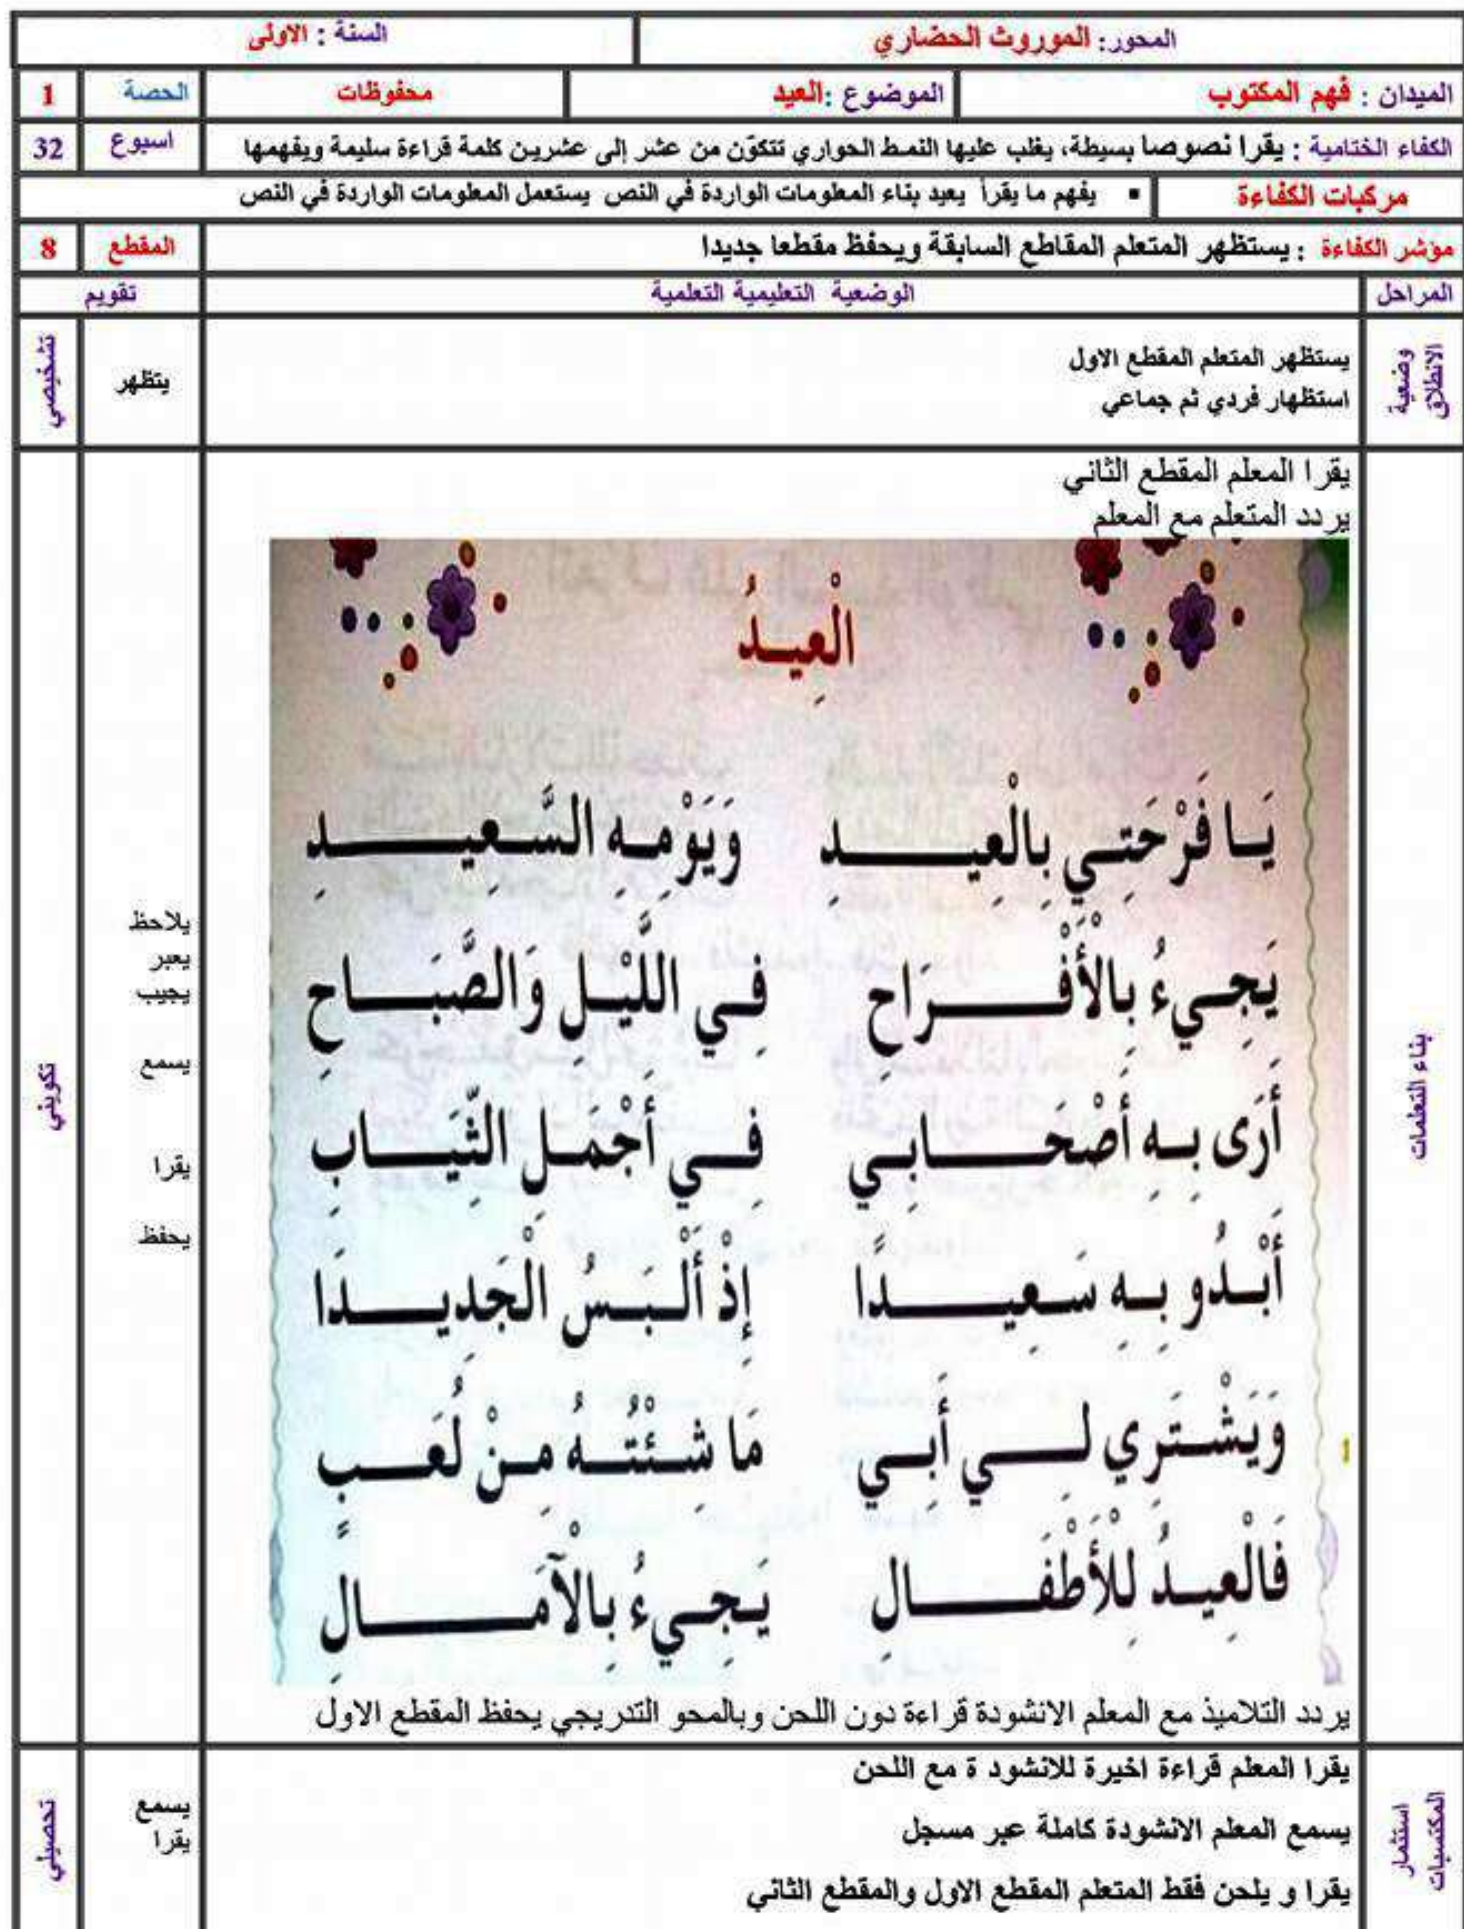 المحور: الموروث الحضاري السنة : الاولى
الميدان : فهم المكتوب الموضوع :العيد محفوظات الحصة 1
الكفاء الختامية : يقرا نصوصا بسيطة، يغلب عليها النمط الحواري تتكوّن من عشر إلى عشرين كلمة قراءة سليمة ويفهمها اسبوع 32
مركبات الكفاءة ▪ يفهم ما يقرأ يعيد بناء المعلومات الواردة في النص يستعمل المعلومات الواردة في النص
مؤشر الكفاءة : يستظهر المتعلم المقاطع السابقة ويحفظ مقطعا جديدا المقطع 8
المراحل الوضعية التعليمية التعلمية تقويم
وضعية الانطلاق
يستظهر المتعلم المقطع الاول
استظهار فردي ثم جماعي
يتظهر
تشخيصي
بناء التعلمات
يقرا المعلم المقطع الثاني
يردد المتعلم مع المعلم
الْعِيدُ
يَا فَرْحَتِي بِالْعِيدِ وَيَوْمِهِ السَّعِيدِ
يَجِيءُ بِالْأَفْرَاحِ فِي اللَّيْلِ وَالصَّبَاحِ
أَرَى بِهِ أَصْحَابِي فِي أَجْمَلِ الثِّيَابِ
أَبْدُو بِهِ سَعِيدًا إِذْ أَلْبَسُ الْجَدِيدَا
وَيَشْتَرِي لِي أَبِي مَا شِئْتُهُ مِنْ لُعَبٍ
فَالْعِيدُ لِلْأَطْفَالِ يَجِيءُ بِالْآمَالِ
1
يردد التلاميذ مع المعلم الانشودة قراءة دون اللحن وبالمحو التدريجي يحفظ المقطع الاول
يلاحظ
يعبر
يجيب
يسمع
يقرا
يحفظ
تكويني
استثمار المكتسبات
يقرا المعلم قراءة اخيرة للانشود ة مع اللحن
يسمع المعلم الانشودة كاملة عبر مسجل
يقرا و يلحن فقط المتعلم المقطع الاول والمقطع الثاني
يسمع
يقرا
تحصيلي